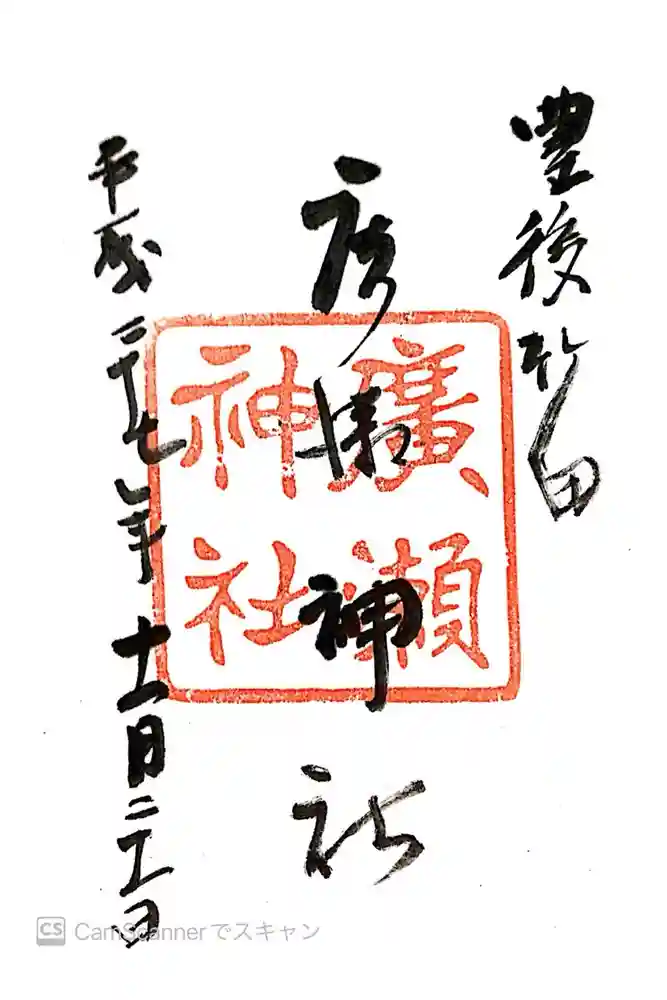 豊後竹田
廣瀬神社
廣瀬
神社
平成二十七年十一月二十一日
CS CamScannerでスキャン